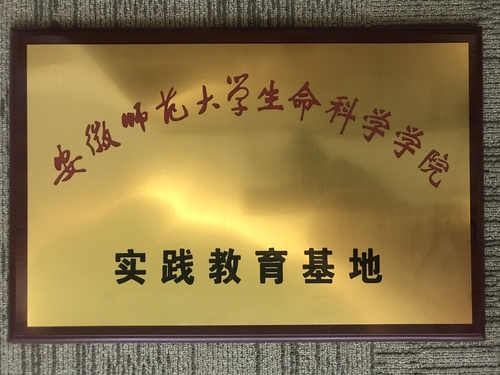 安徽师范大学生命科学学院
实践教育基地